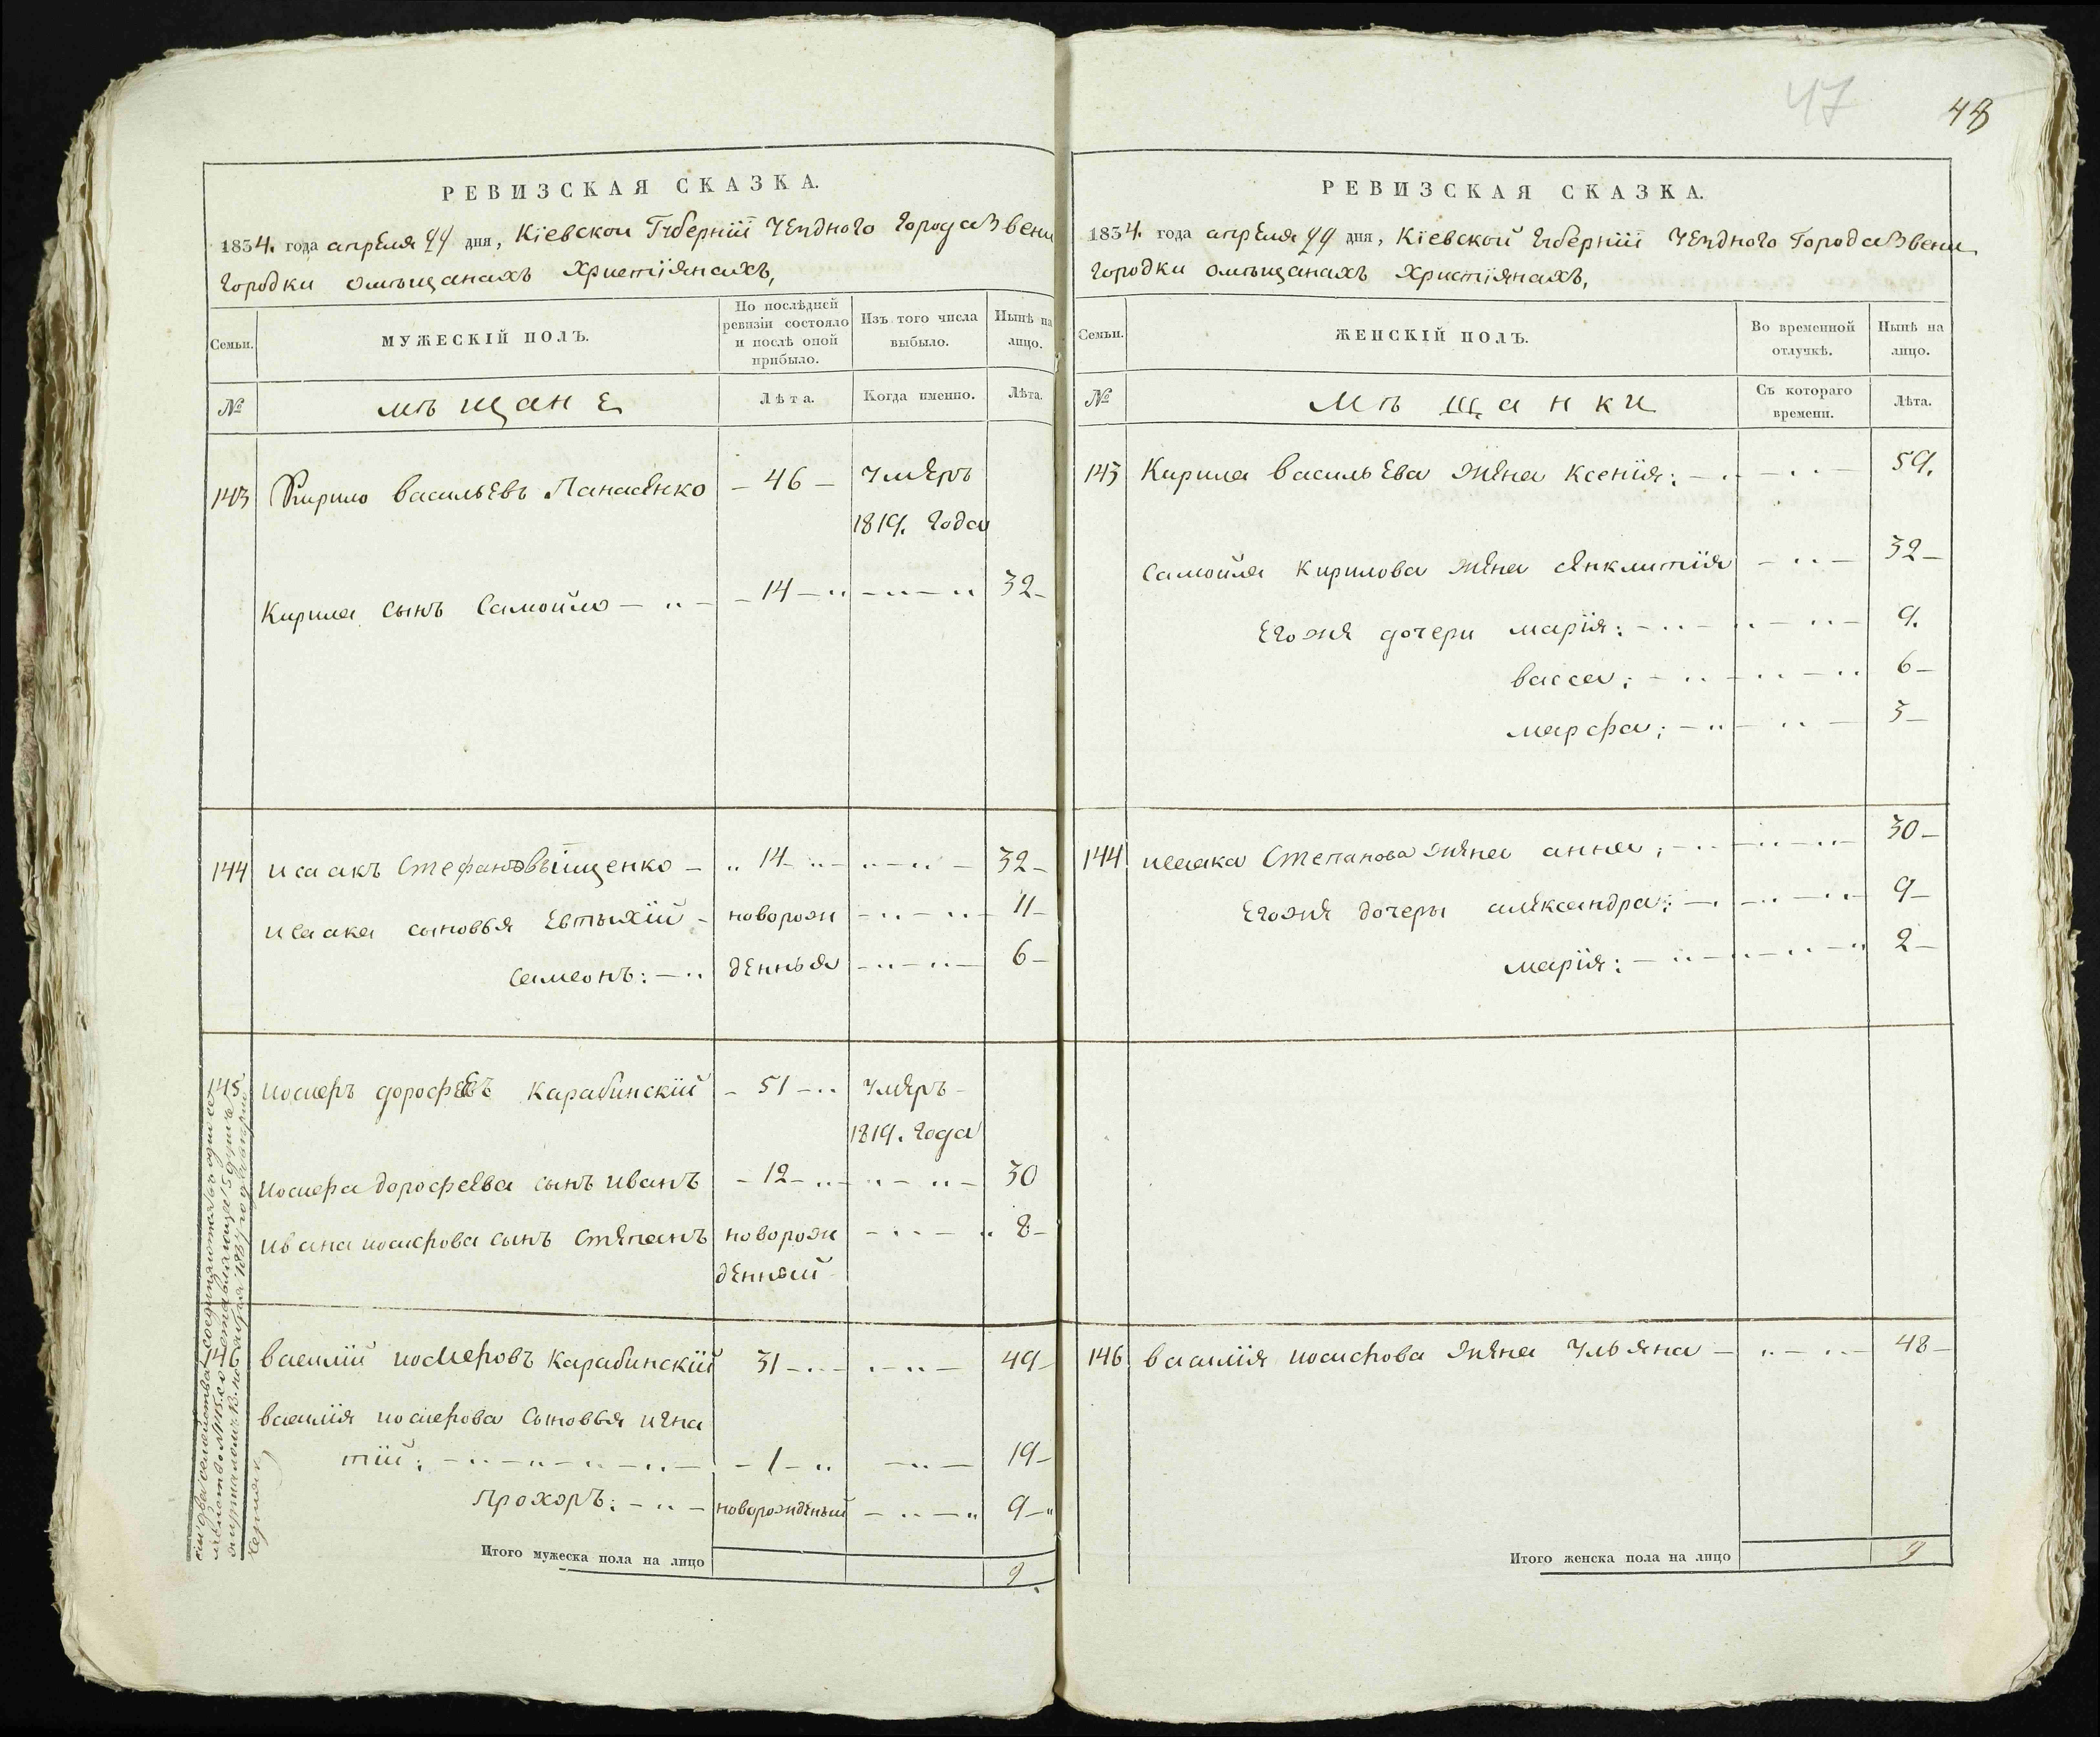 47
48
РЕВИЗСКАЯ СКАЗКА.
1834. года апреля 29 дня, Кіевской Губерніи Уезднаго Города Звени
городки омѣщанахъ Христіянахъ,
Семьи.
МУЖЕСКІЙ ПОЛЪ.
По послѣдней
ревизіи состояло
и послѣ оной
прибыло.
Изъ того числа
выбыло.
Нынѣ на
лицо.
№
мѣщане
Лѣта.
Когда именно.
Лѣта.
143 Кирило васильевъ Панасенко – 46 – умеръ
1819. года
Кирила сынъ Самойло – 14 – 32 –
144 исаакъ Стефановъ ищенко – 14 – 32 –
исаака сыновья Евтыхій – новорож 11 –
Самсонъ: – денныя 6 –
145 иосифъ дорофеевъ Карабинскій – 51 – умеръ –
1819. года
иосифа дорофеева сынъ иванъ – 12 – 30
ивана иосифова сынъ Степанъ новорож 8 –
денный
146 василій иосифовъ Карабинскій 31 – 49 –
василія иосифова Сыновья игна
тій: – 1 – 19 –
Прохоръ: – новорожденый 9 –
Итого мужеска пола на лицо 9
РЕВИЗСКАЯ СКАЗКА.
1834. года апреля 29 дня, Кіевской Губерніи Уезднаго Города Звени
городки омѣщанахъ Христіянахъ,
Семьи.
ЖЕНСКІЙ ПОЛЪ.
Во временной
отлучкѣ.
Нынѣ на
лицо.
№
Мѣщанки
Съ котораго
времени.
Лѣта.
143 Кирила васильева жена Ксенія: – 59.
Самойла Кирилова жена – 32 –
Егоже дочери марія: – 9.
васса: – 6 –
марфа: – 3 –
144 исаака Степанова жена анна: – 30 –
Егоже дочеры александра: – 9 –
марія: – 2 –
146 василія иосифова жена Ульяна – 48 –
Итого женска пола на лицо 9